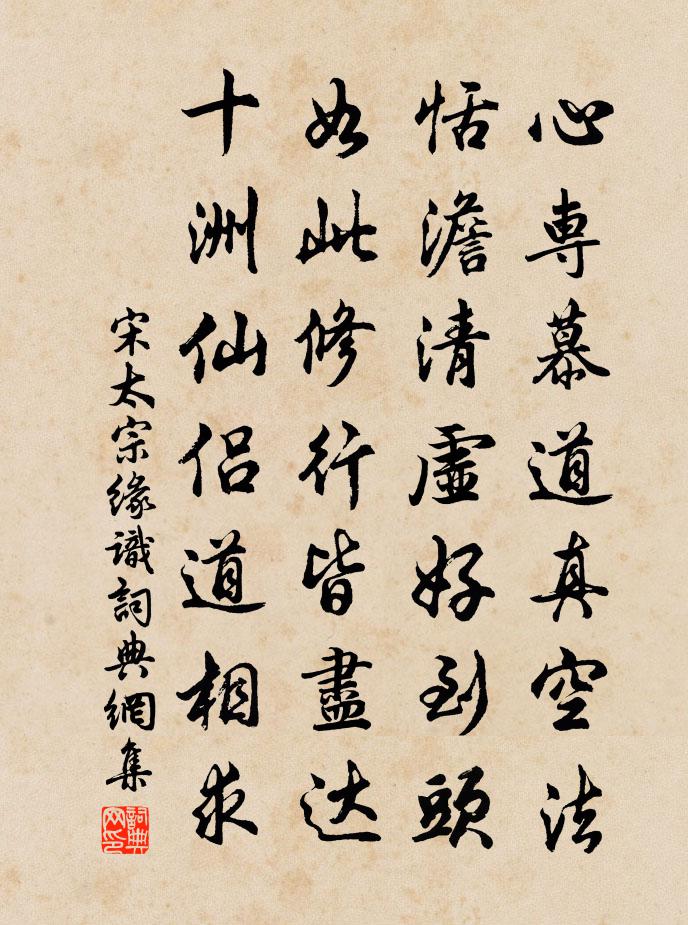 心専慕道真空法
恬澹清虛好到頭
如此修行皆盡达
十洲仙侣道相求
宋太宗緣識詞典網集
詞典网印